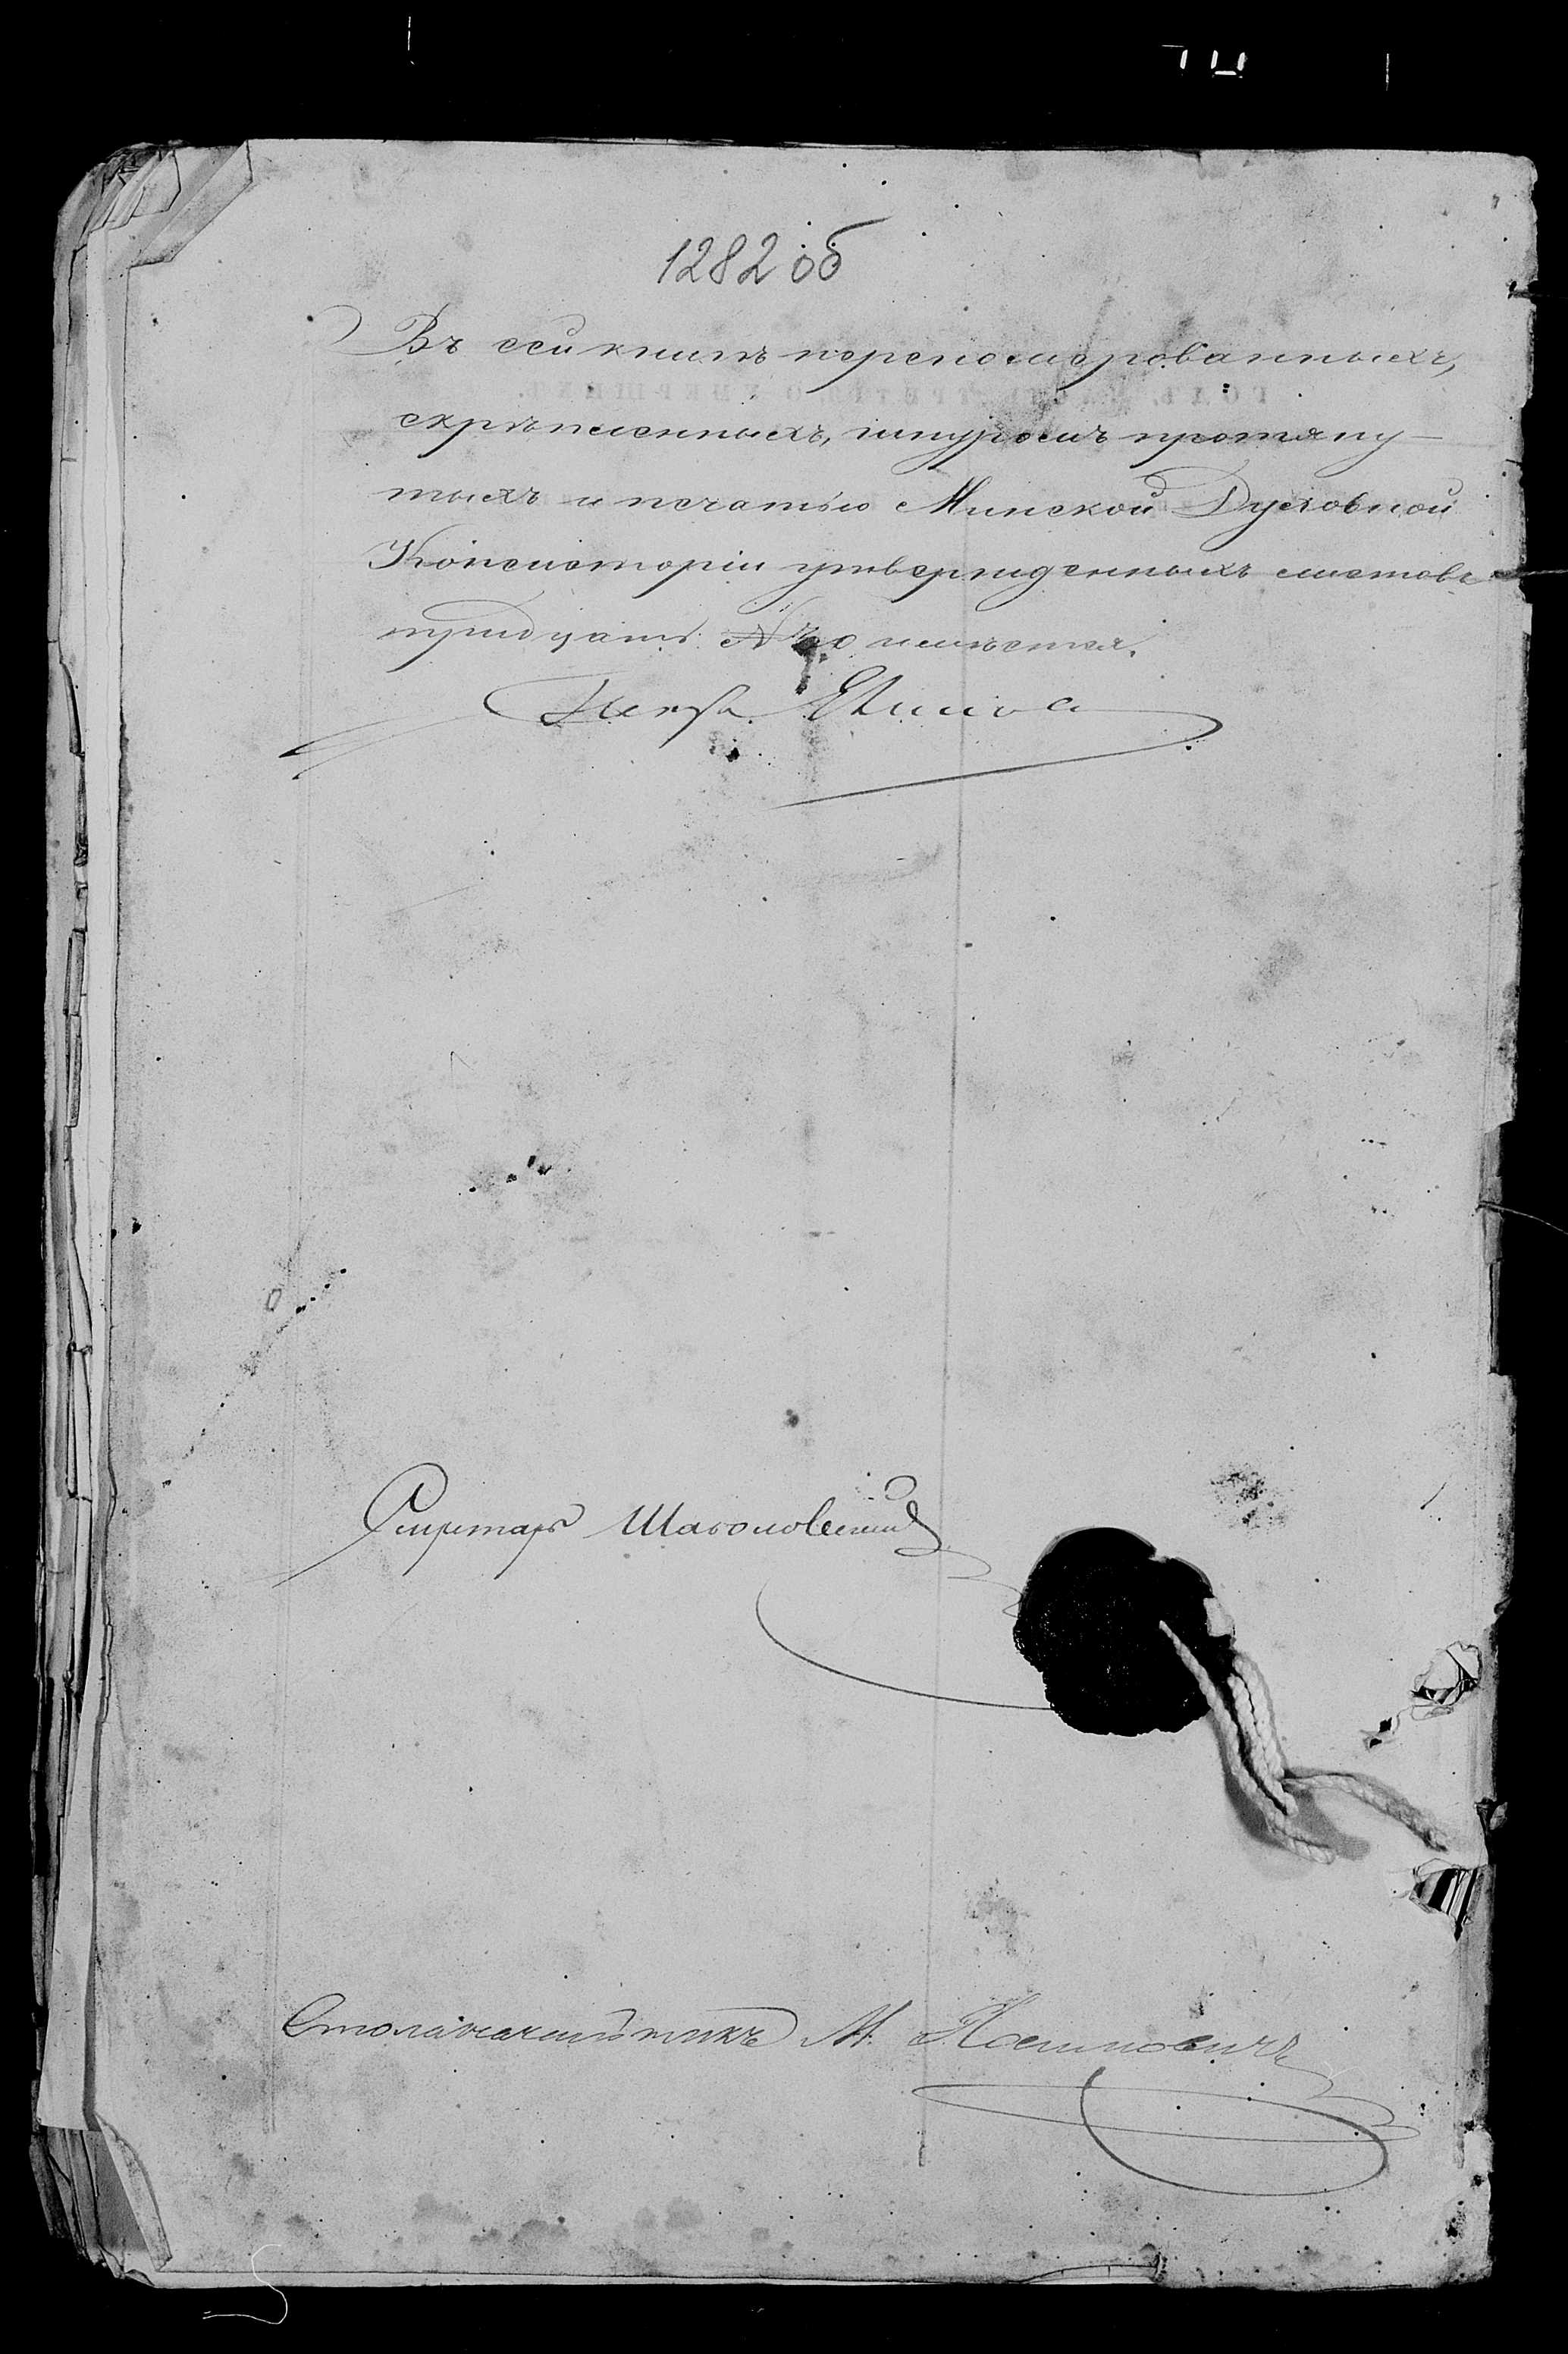 1282 об
Въ сей книгѣ перепомерованныхъ,
скрѣпленныхъ, шнуромъ протяну-
тыхъ и печатью Минской Духовной
Консисторіи утвержденныхъ листовъ
тридцать имѣется.
Секретарь
Столоначальникъ М.